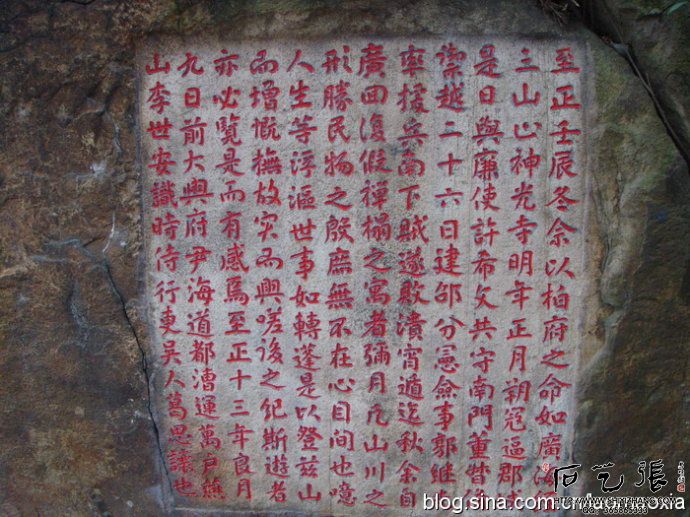 至正壬辰冬余以柏府之命如廣海
三山止神光寺明年正月朔寇逼郡
是日與廉使許希文共守南門重眥
禦越二十六日建邵分憲僉事郭継
率援兵南下賊遂敗潰宵遁迄秋余自
廣回復假禪榻之寓者彌月凡山川之
形勝民物之殷庶無不在心目間也噫
人生等浮漚世事如轉蓬是以登茲山
而增慨撫故实而興嗟後之紀斯遊者
亦必覽是而有感焉至正十三年良月
九日前大興府尹海道都漕運萬戶燕
山李世安識時侍行吏吳人葛思讓也
石艺張
blog.sina.com.cn/